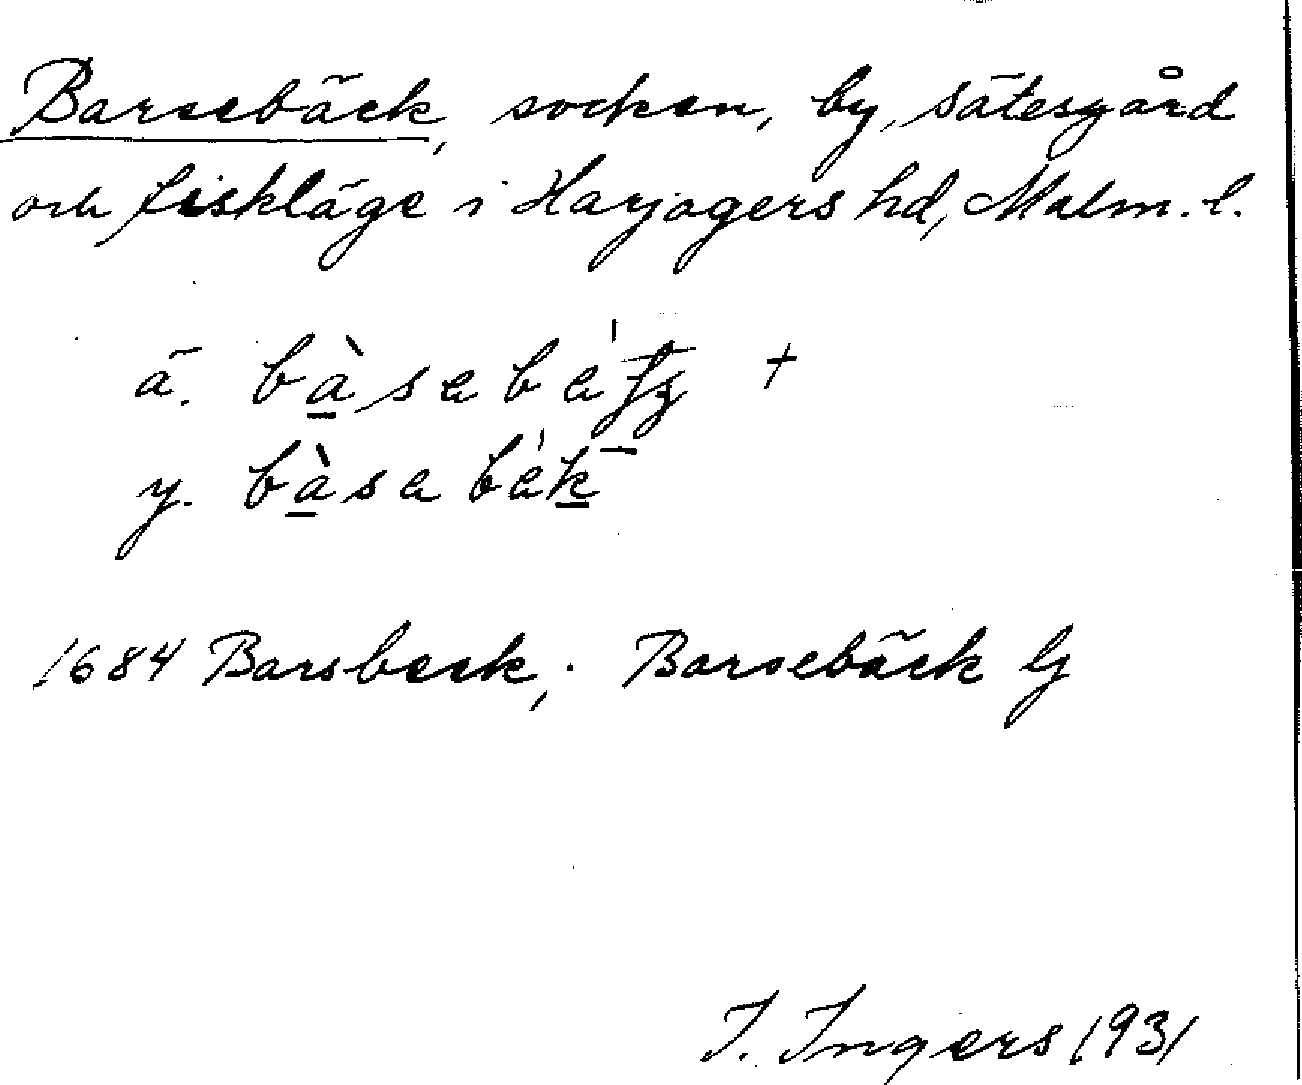 Barsebäck, socken, by, sätesgård
och fiskläge i Harjagers hd, Malm. l.
ä.
y. bàsabák
1684 Barsbeck; Barsebäck Gj
I. Ingers 1931